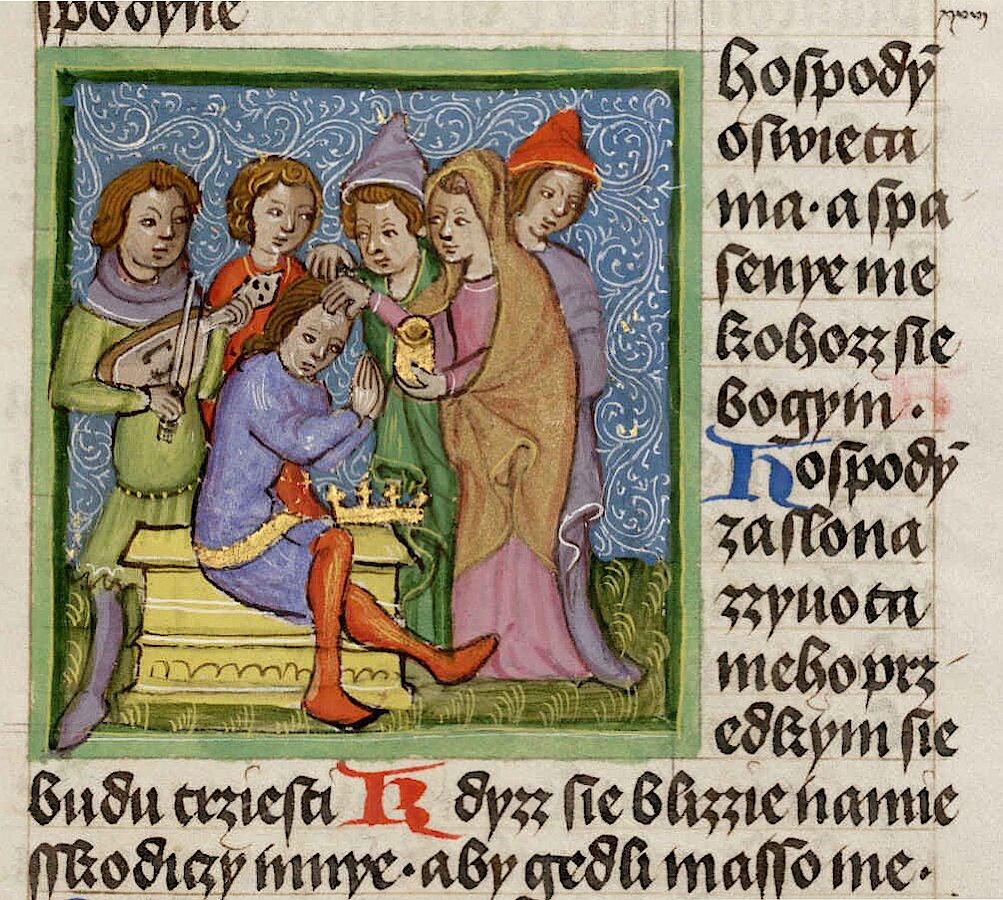 spodyne
hospodȳ
oswieta
ma · a spa
senye me
kohozz sie
bogym ·
Hospodȳ
zaslona
zzyuota
meho prz
edkym sie
budu trziesti Kdyzz sie blizzie namie
sskodiczy mnye · aby gedli masso me ·